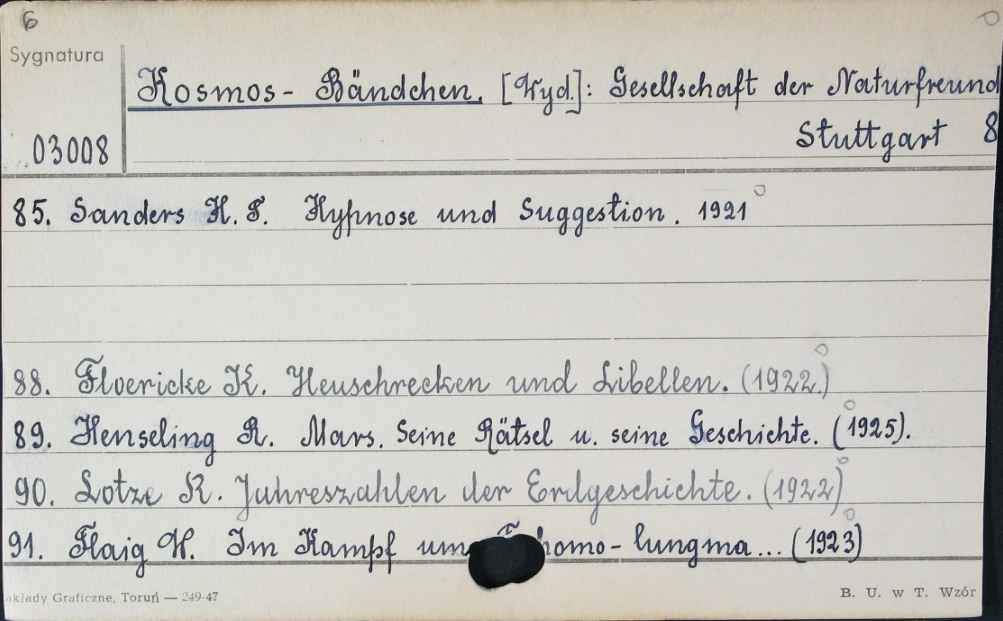 6
Sygnatura
Kosmos- Bändchen. [Wyd.]: Gesellschaft der Naturfreund
03008
Stuttgart 8
85. Sanders H. F. Hypnose und Suggestion. 1921
88. Floericke K. Heuschrecken und Libellen. (1922.)
89. Henseling R. Mars. Seine Rätsel u. seine Geschichte. (1925).
90. Lotze R. Jahreszahlen der Erdgeschichte. (1922)
91. Flaig W. Im Kampf um homo- lungma... (1923)
akłady Graficzne, Toruń — 249-47
B. U. w T. Wzór